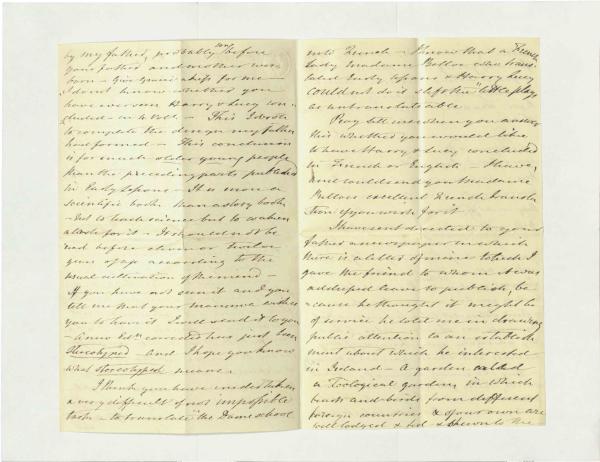 by my father, probably long before
your father and mother were
born - Give Grace a kiss for me -
I don't know whether you
have ever seen Harry & Lucy con-
cluded - in 4 Voll. - This I wrote
to complete the design my father
had formed - This conclusion
is for much older young people
than the preceding parts published
in Early Lessons - It is more a
Scientific book than a story book
- not to teach science but to awaken
a taste for it - It should not be
read before eleven or twelve
years of age according to the
usual cultivation of the mind -
If you have not seen it and you
tell me that your mamma wishes
you to have it I will send it to you
- A new Edn. corrected has just been
Stereotyped - And I hope you know
what Stereotyped means -
I think you have undertaken
a very difficult if not impossible
task - to translate "the Dame school
into French - I know that a French
lady Madame Belloc who trans-
lated Early Lessons & Harry & Lucy
could not do it & left the little plays
as untranslatable
Pray tell me when you answer
this whether you would like
to have Harry & Lucy concluded
in French or English - I have
and could send you Madame
Bellocs excellent French transla-
tion if you wish for it
I have sent directed to your
father a newspaper in which
there is a letter of mine which I
gave the friend to whom it was
addressed leave to publish, be-
cause he thought it might be
of service he told me in drawing
public attention to an establish
ment about which he interested
in Ireland - A garden called
a Zoological garden, in which
beasts and birds from different
foreign countries & of our own are
well lodged & fed & shown to the